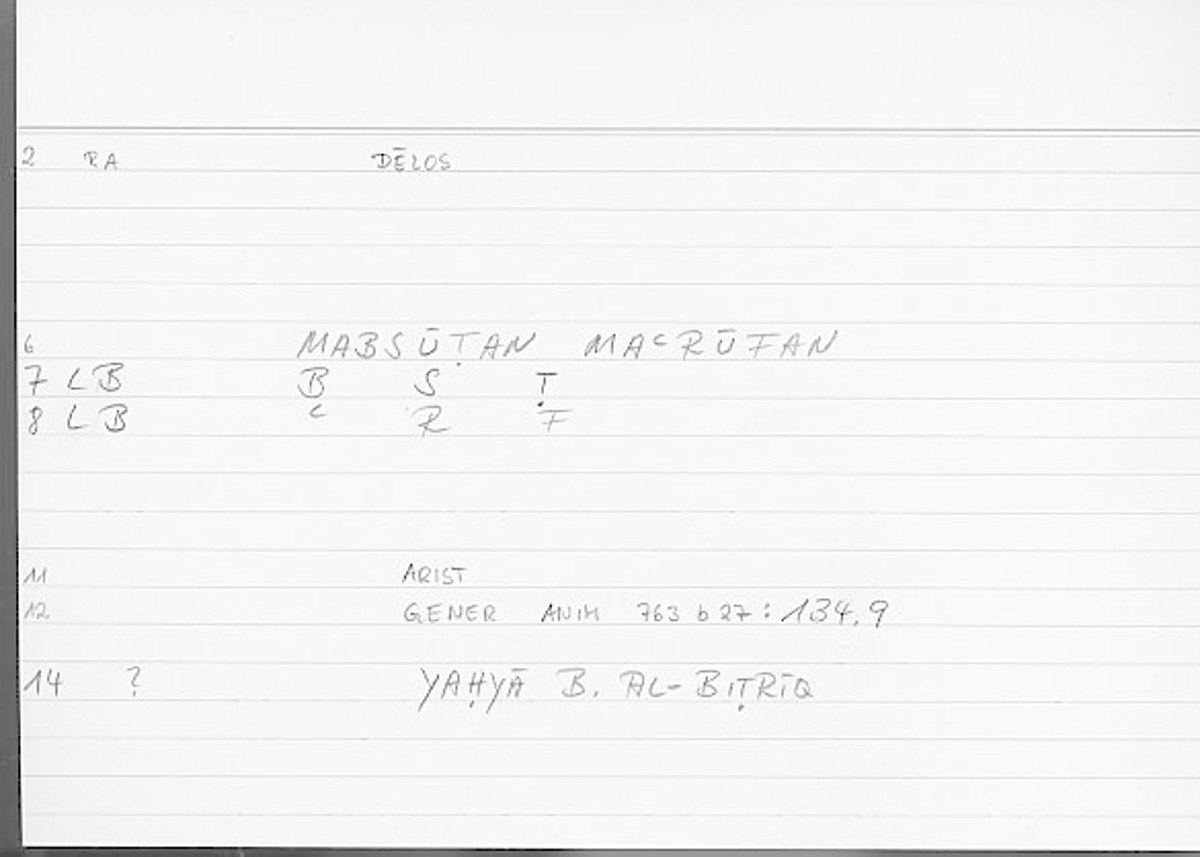 2 RA DĒLOS
6 MABSŪṬAN MAᶜRŪFAN
7 LB B S Ṭ
8 LB ᶜ R F
11 ARIST
12 GENER ANIM 763 b 27 : 134,9
14 ? YAḤYĀ B. AL-BIṬRĪQ